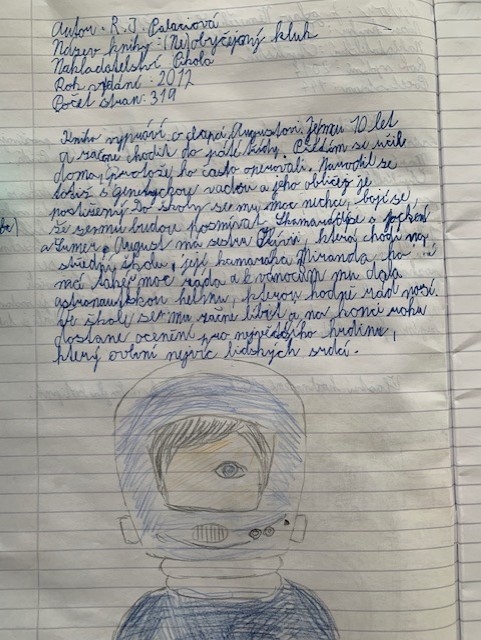 Autor: R. J. Palaciová
Název knihy: (Ne)obyčejný kluk
Nakladatelství Pikola
Rok vydání: 2017
Počet stran: 319
Kniha vypráví o klukovi Augustovi. Jemu 10 let
a začne chodit do páté třídy. Předtím se učil
doma, protože ho často operovali. Narodil se
totiž s genetickou vadou a jeho obličej je
postižený. Do školy se mu moc nechce, bojí se,
že se mu budou posmívat. Skamarádí se s Jackem
a Summer. August má sestru Olivii, která chodí na
střední školu, její kamarádka Miranda, ho
má také moc ráda a k vánocům mu dala
astronautskou helmu, kterou hodně rád nosí.
Ve škole se mu začne líbit a na konci roku
dostane ocenění pro největšího hrdinu,
který ovlivní nejvíc lidských srdcí.